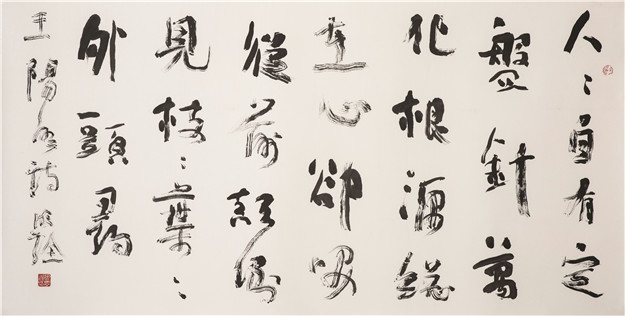 人〻自有定
盤針萬
化根源總
在心卻笑
從前顛倒
見枝〻葉〻
外頭尋
王陽明詩